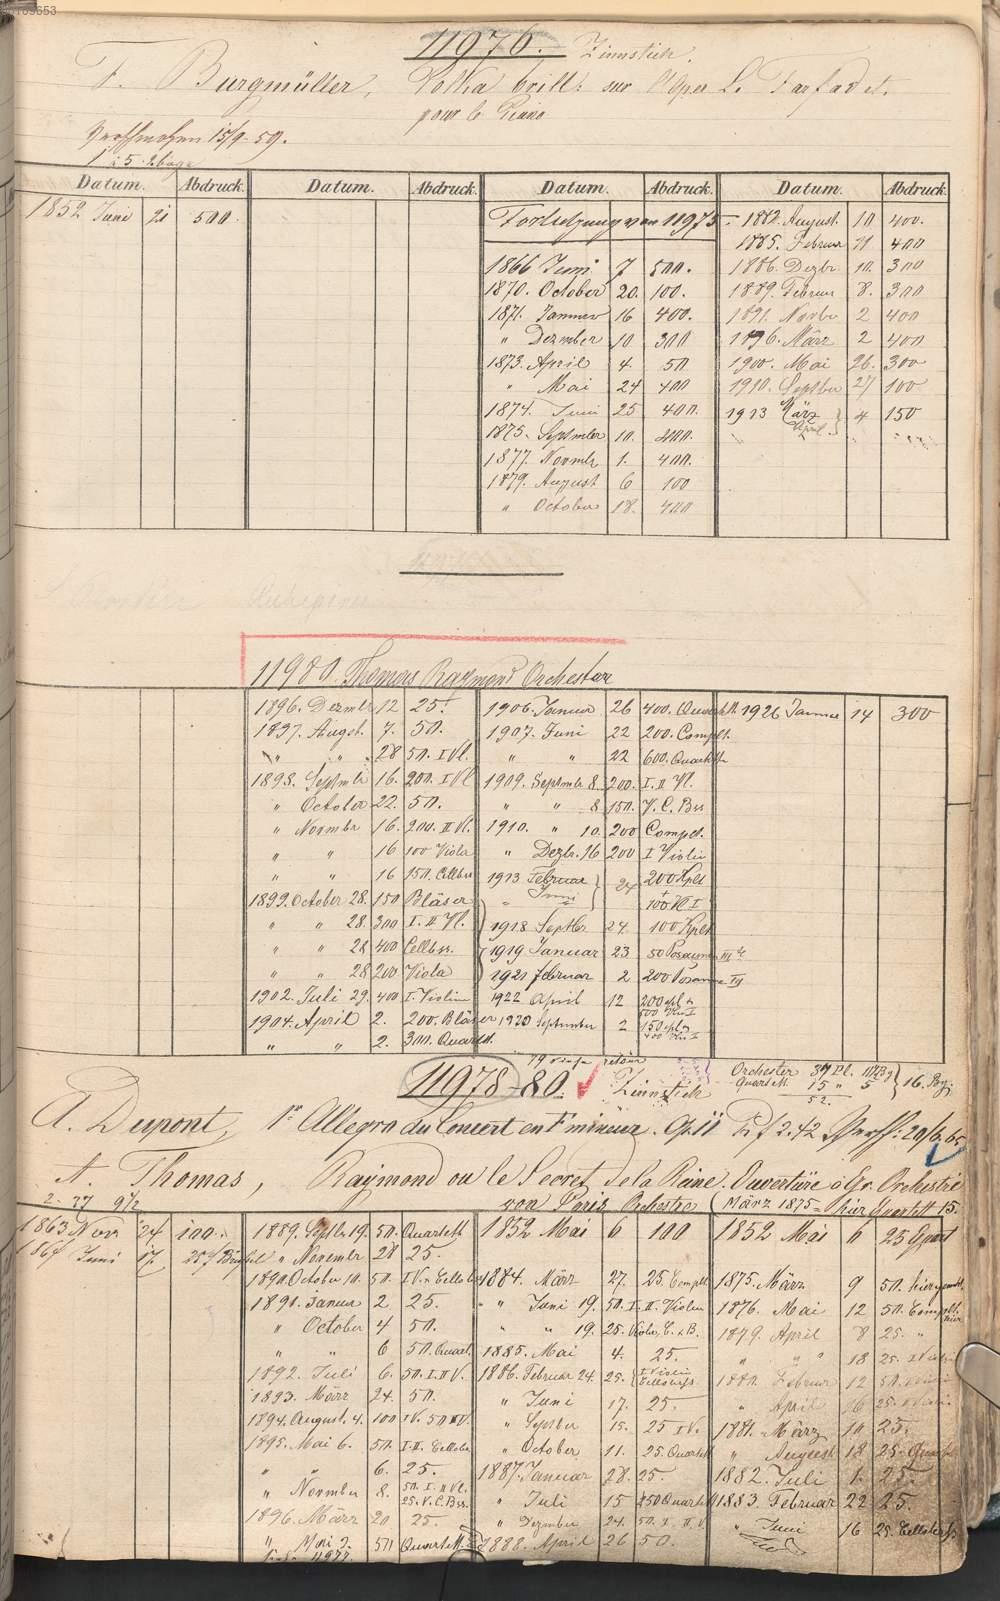 11976. Zinnstich.
F. Burgmüller, Polka brill: sur l'Oper Le Farfadet.
pour le Piano
15/9-59.
Datum. Abdruck. Datum. Abdruck. Datum. Abdruck. Datum. Abdruck.
1852 Juni 21 500
Fortsetzung von 11975
1866 Juni 7 500.
1870. October 20. 100.
1871. Januar 16 400.
" Dezember 10 300
1873. April 4. 50
" Mai 24 400
1874. Juni 25 400.
1875. Septmber 10.
1877. Novmbr 1. 400.
1879. August 6 100
" October 18. 400
1882. August. 10 400.
1885. Februar 400
1886. Dezbr. 10. 300
1889. Februar 8. 300
1891. Novbr 2 400
1896. März 2 400
1900. Mai 26. 300
1910. Septber 27 100
1913 März 4 150
April
11980. Thomas Raymond Orchester
1896. Dezmbr 12 25.
1897. Augst. 7. 50.
" " 28 50. I Vl.
1898. Septmbr 16. 200. I Vl
" October 22. 50.
" Novmbr 16. 200. II Vl.
" " 16 100 Viola
" " 16 150. Cellbss
1899. October 28. 150 Bläser
" " 28. 300 I. II Vl.
" " 28 400 Cellbss.
" " 28 200 Viola
1902. Juli 29. 400 I. Violin
1904. April 2. 200. Bläser
" " 2. 300. Quartett.
1906. Januar 26 400. Quartett
1907. Juni 22 200. Complt.
" " 22 600. Quartett
1909. Septmbr 8. 200. I. II Vl.
" " 8 150. V. C. Bss
1910. " 10. 200 Compl.
" Dezbr. 16 200 I Violin
1913 Februar 24 200 Kplt
" Juni + 100 Vl I
1918 Septbr 24. 100 Kplt
1919 Januar 23 50 Posaune III
1921 februar 2 200 Posaune
1922 April 12 200 cplt
500 Vln I
1920 September 2 150 cplt
400 Vln I
1926 Januar 14 300
retour
11978-80. Zinnstich
Orchester 37 Pl.
Quartett 15 " 5 16. Bog.
52.
A. Dupont, 1r Allegro du Concert en F mineur. Op. 11
A. Thomas, Raymond ou le Secret de la Reine. Ouvertüre à Gr. Orchestre
von Paris Orchestre (März 1875 = hier Quartett 15.
2. 37 9½
1863 Nov 24 100.
1867 Juni 17. 25 f Brüssel
1889. Septbr 19. 50. Quartett
" November 28 25.
1890. October 10. 50. I V. Cello
1891. Januar 2 25.
" October 4 50.
" " 6 50. Quart.
1892. Juli 6. 50. I. II V.
1893. März 24. 50.
1894. August. 4. 100 I V. 50 II V.
1895. Mai 6. 50. I-II. Cello
" " 6. 25.
" Novmber 8. 50. I. II Vl.
25. V. C. Bss.
1896. März 20 25.
" Mai 2. 50 Quartett.
1852 Mai 6 100
1884. März 27. 25. Complt
" Juni 19. 50. I. II. Violin
" " 19. 25. Viola, C. & B.
1885. Mai 4. 25.
1886. Februar 24. 25. I Violin
Cellobass
" Juni 17. 25.
" Septber 15. 25 I V.
" October 11. 25. Quartett
1887. Januar 28. 25.
" Juli 15 250 Quartett
" Dezmber 24. 50. I. II. V
1888. April 26 50.
1852 Mai 6 25 Cpart
1875. März 9 50. hier
1876. Mai 12 50. Complt.
hier
1879. April 8 25. "
" " 18 25. I Violin
1880. Februar 12 50.
" April 16 25.
1881. März 10 25.
" August 18 25. Quartett
1882. Juli 1. 25.
1883. Februar 22 25.
" Juni 16 25. Cellobss